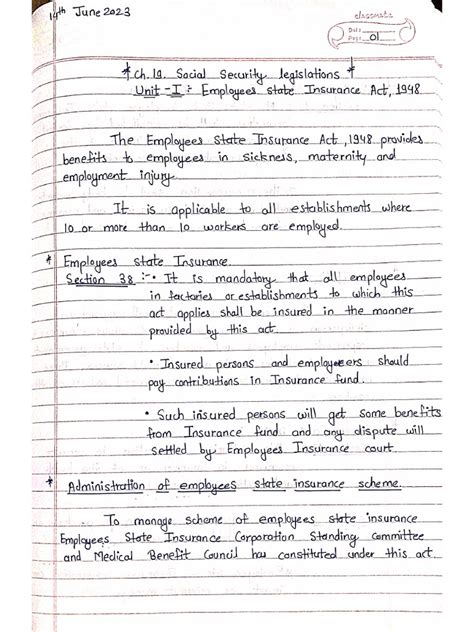 14th June 2023
classmate
Date
Page 01
* Ch. 19. Social Security legislations *
Unit - I :- Employees State Insurance Act, 1948
The Employees State Insurance Act, 1948 provides
benefits to employees in sickness, maternity and
employment injury.
It is applicable to all establishments where
10 or more than 10 workers are employed.
* Employees State Insurance.
Section 38 :- • It is mandatory that all employees
in factories or establishments to which this
act applies shall be insured in the manner
provided by this act.
• Insured persons and employeers should
pay contributions in Insurance fund.
• Such insured persons will get some benefits
from Insurance fund and any dispute will
settled by Employees Insurance court.
* Administration of employees state insurance scheme.
To manage scheme of employees state insurance
Employees State Insurance Corporation Standing committee
and Medical Benefit Council has constituted under this act.